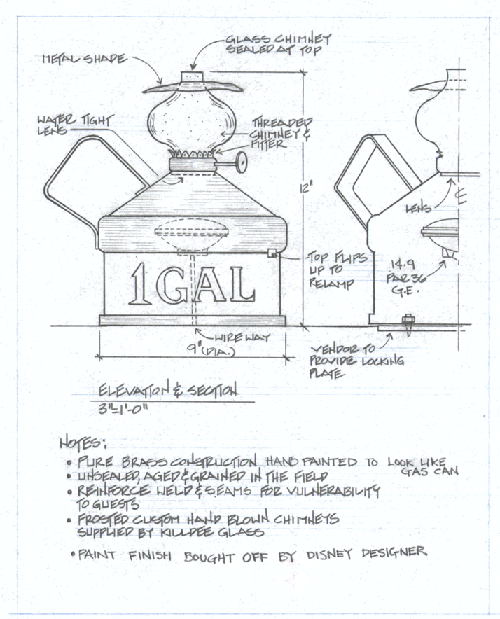 GLASS CHIMNEY
SEALED AT TOP
METAL SHADE
WATER TIGHT
LENS
THREADED
CHIMNEY &
FITTER
12"
LENS
TOP FLIPS
UP TO
RELAMP
14.9
PAR 36
G.E.
1 GAL
WIRE WAY
9" (DIA.)
VENDOR TO
PROVIDE LOCKING
PLATE
ELEVATION & SECTION
3"=1'-0"
NOTES:
• PURE BRASS CONSTRUCTION HAND PAINTED TO LOOK LIKE
GAS CAN
• UNSEALED, AGED & GRAINED IN THE FIELD
• REINFORCE WELD & SEAMS FOR VULNERABILITY
TO GUESTS
• FROSTED CUSTOM HAND BLOWN CHIMNEYS
SUPPLIED BY KILLDEE GLASS
• PAINT FINISH BOUGHT OFF BY DISNEY DESIGNER